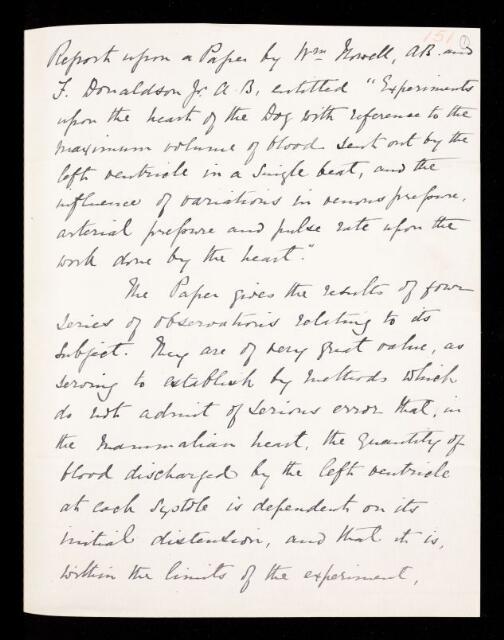 151 1
Report upon a Paper by Wm Howell, A.B. and
F. Donaldson Jr. A.B, entitled "Experiments
upon the heart of the Dog with reference to the
maximum volume of blood sent out by the
left ventricle in a single beat, and the
influence of variations in venous pressure,
arterial pressure and pulse rate upon the
work done by the heart."
The Paper gives the results of four
series of observations relating to its
subject. They are of very great value, as
serving to establish by methods which
do not admit of serious error that, in
the Mammalian heart, the quantity of
blood discharged by the left ventricle
at each systole is dependent on its
initial distension, and that it is,
within the limits of the experiment,